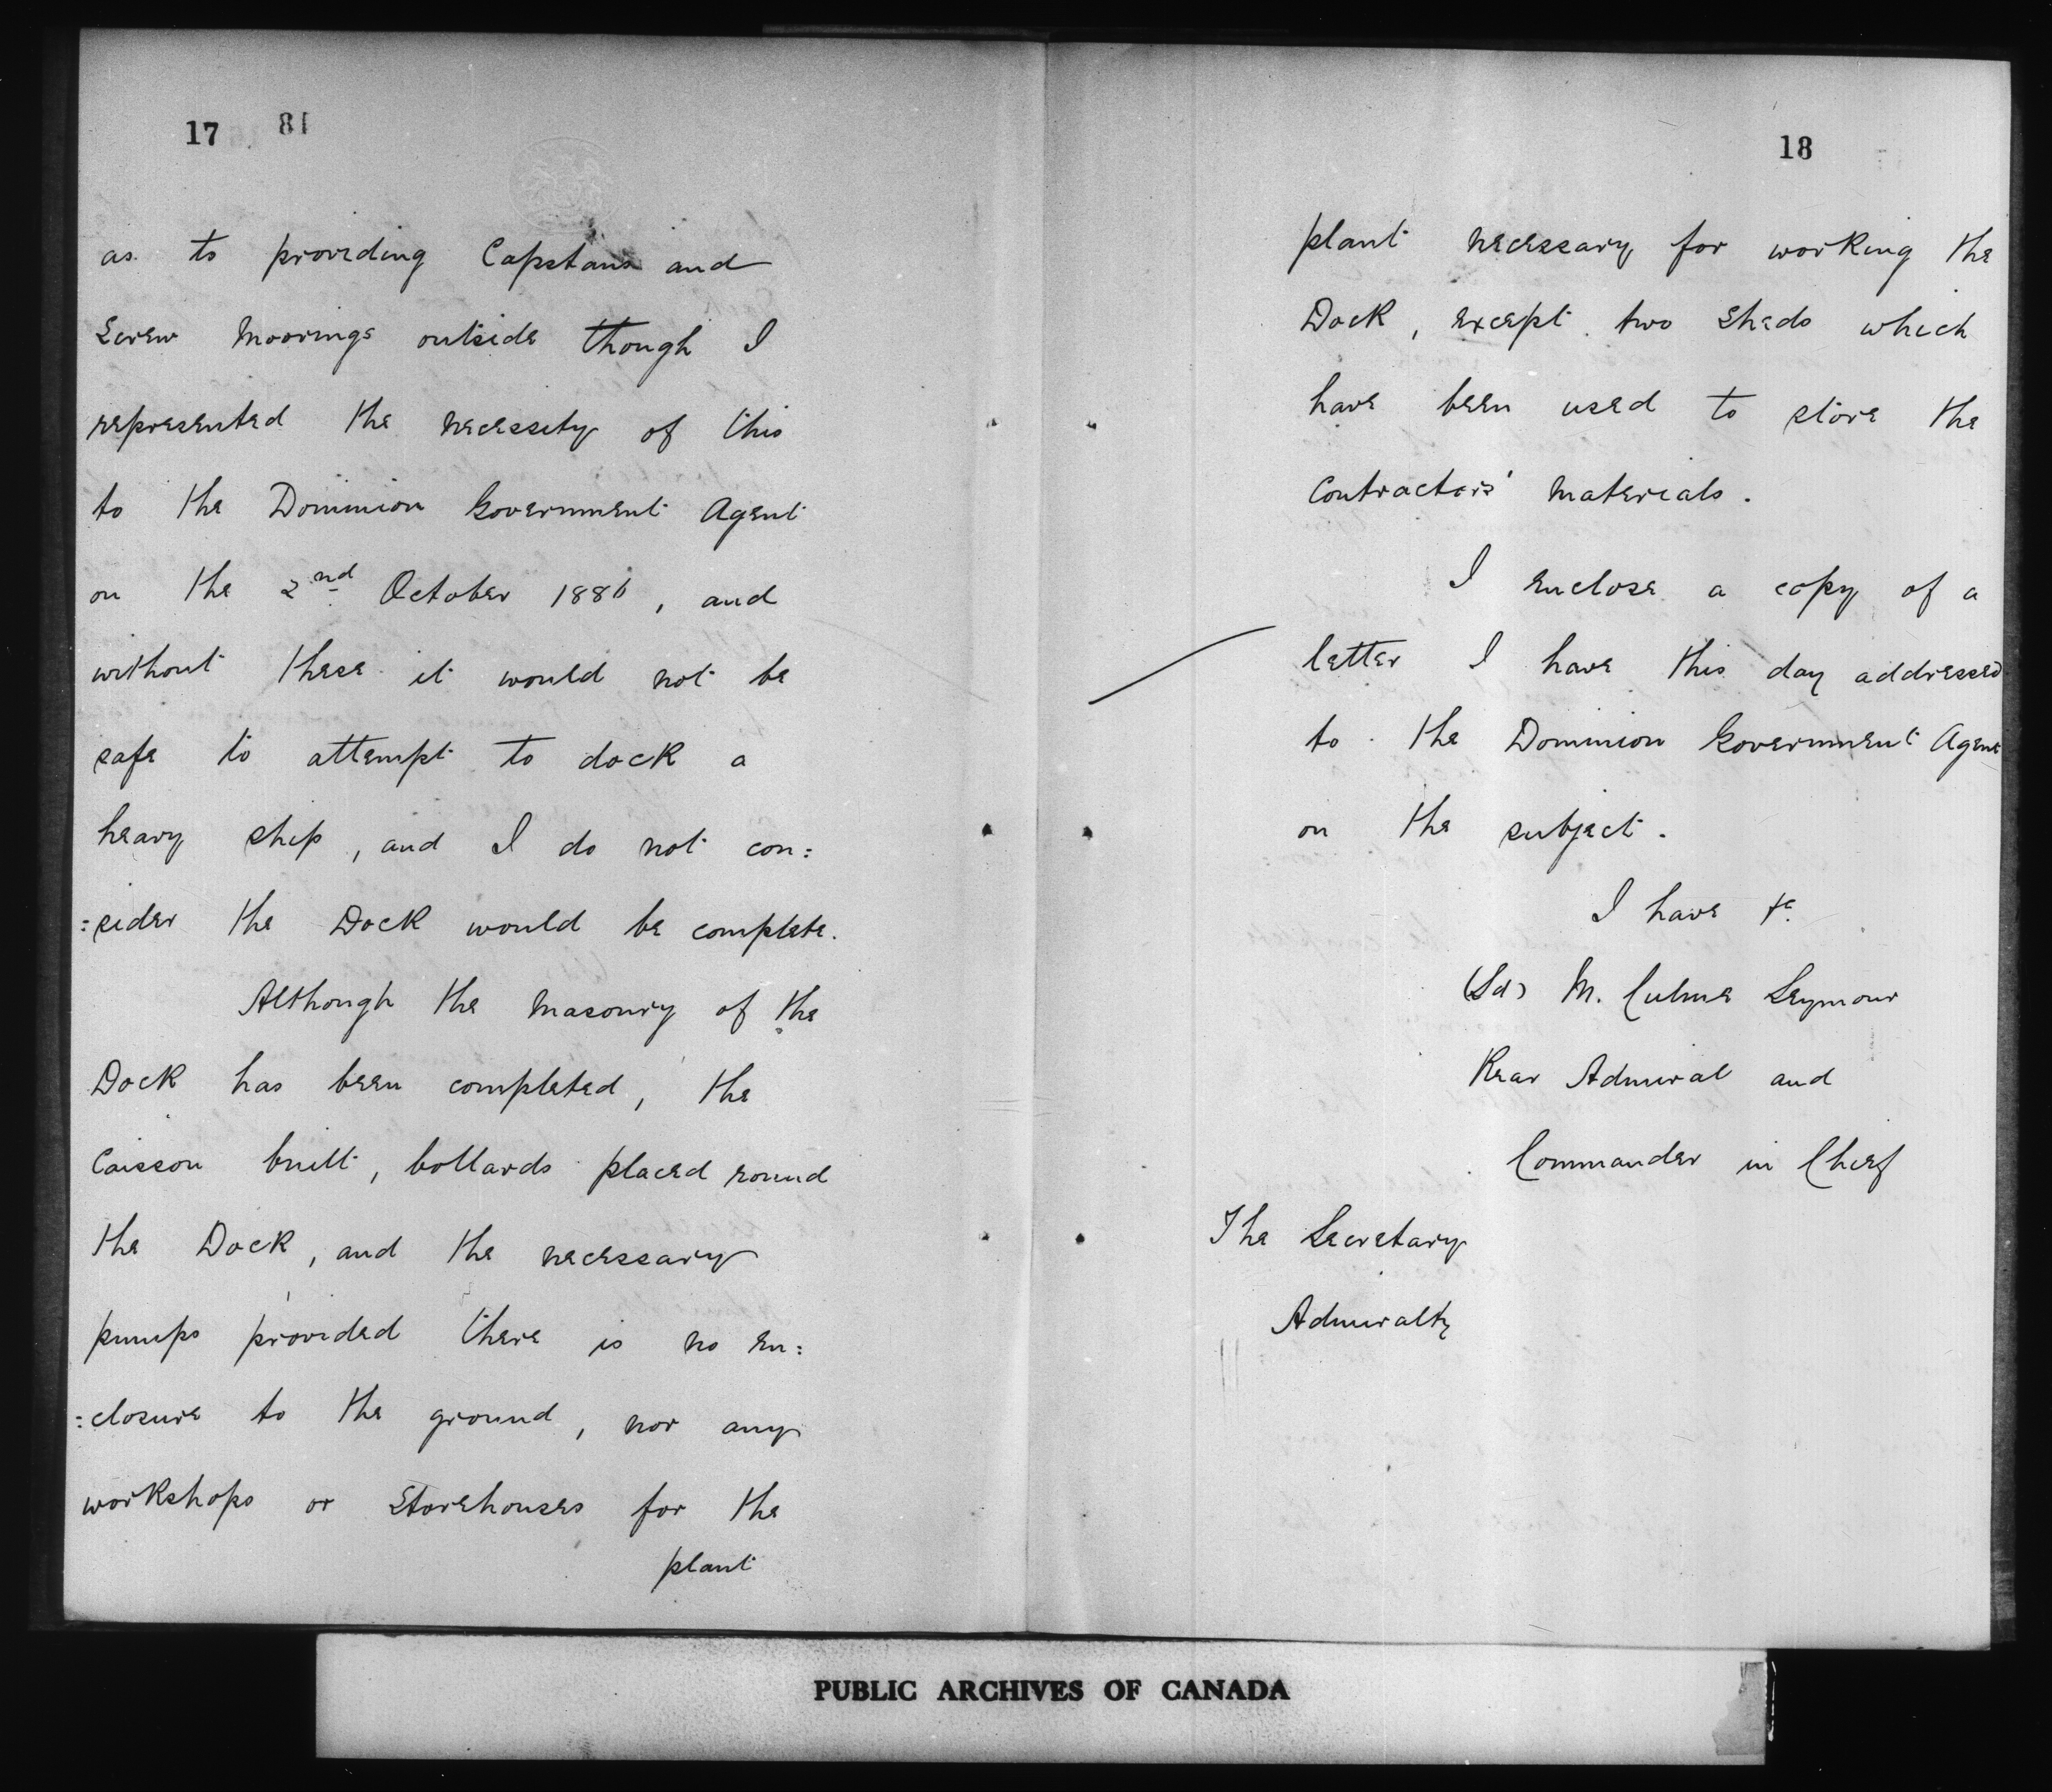 17
18
as to providing Capstans and
Screw Moorings outside though I
represented the necessity of this
to the Dominion Government Agent
on the 2nd October 1886, and
without these it would not be
safe to attempt to dock a
heavy ship, and I do not con:
:sider the Dock would be complete.
Although the masonry of the
Dock has been completed, the
Caisson built, bollards placed round
the Dock, and the necessary
pumps provided there is no en:
:closure to the ground, nor any
workshops or Storehouses for the
plant
18
plant necessary for working the
Dock, except two sheds which
have been used to store the
Contractors' materials.
I enclose a copy of a
letter I have this day addressed
to the Dominion Government Agent
on the subject.
I have &c.
(Sd) M. Culme Seymour
Rear Admiral and
Commander in Chief
The Secretary
Admiralty
PUBLIC ARCHIVES OF CANADA